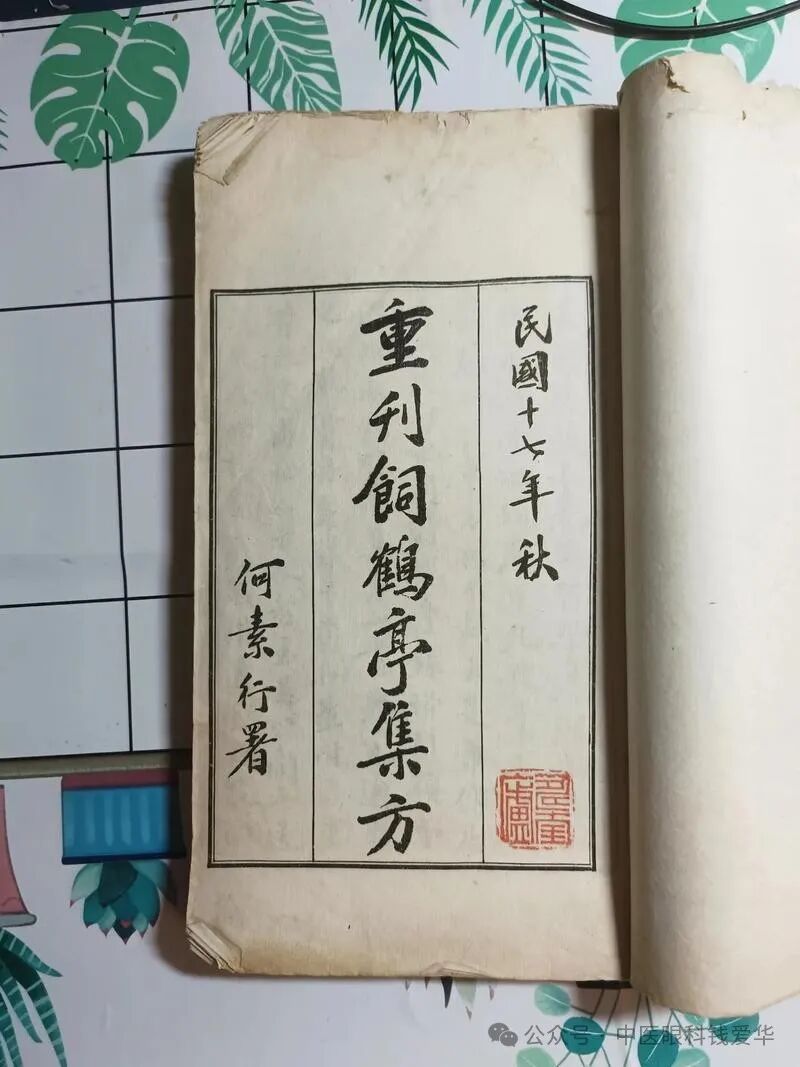 民國十七年秋
重刊飼鶴亭集方
何素行署
公众号·中医眼科钱爱华